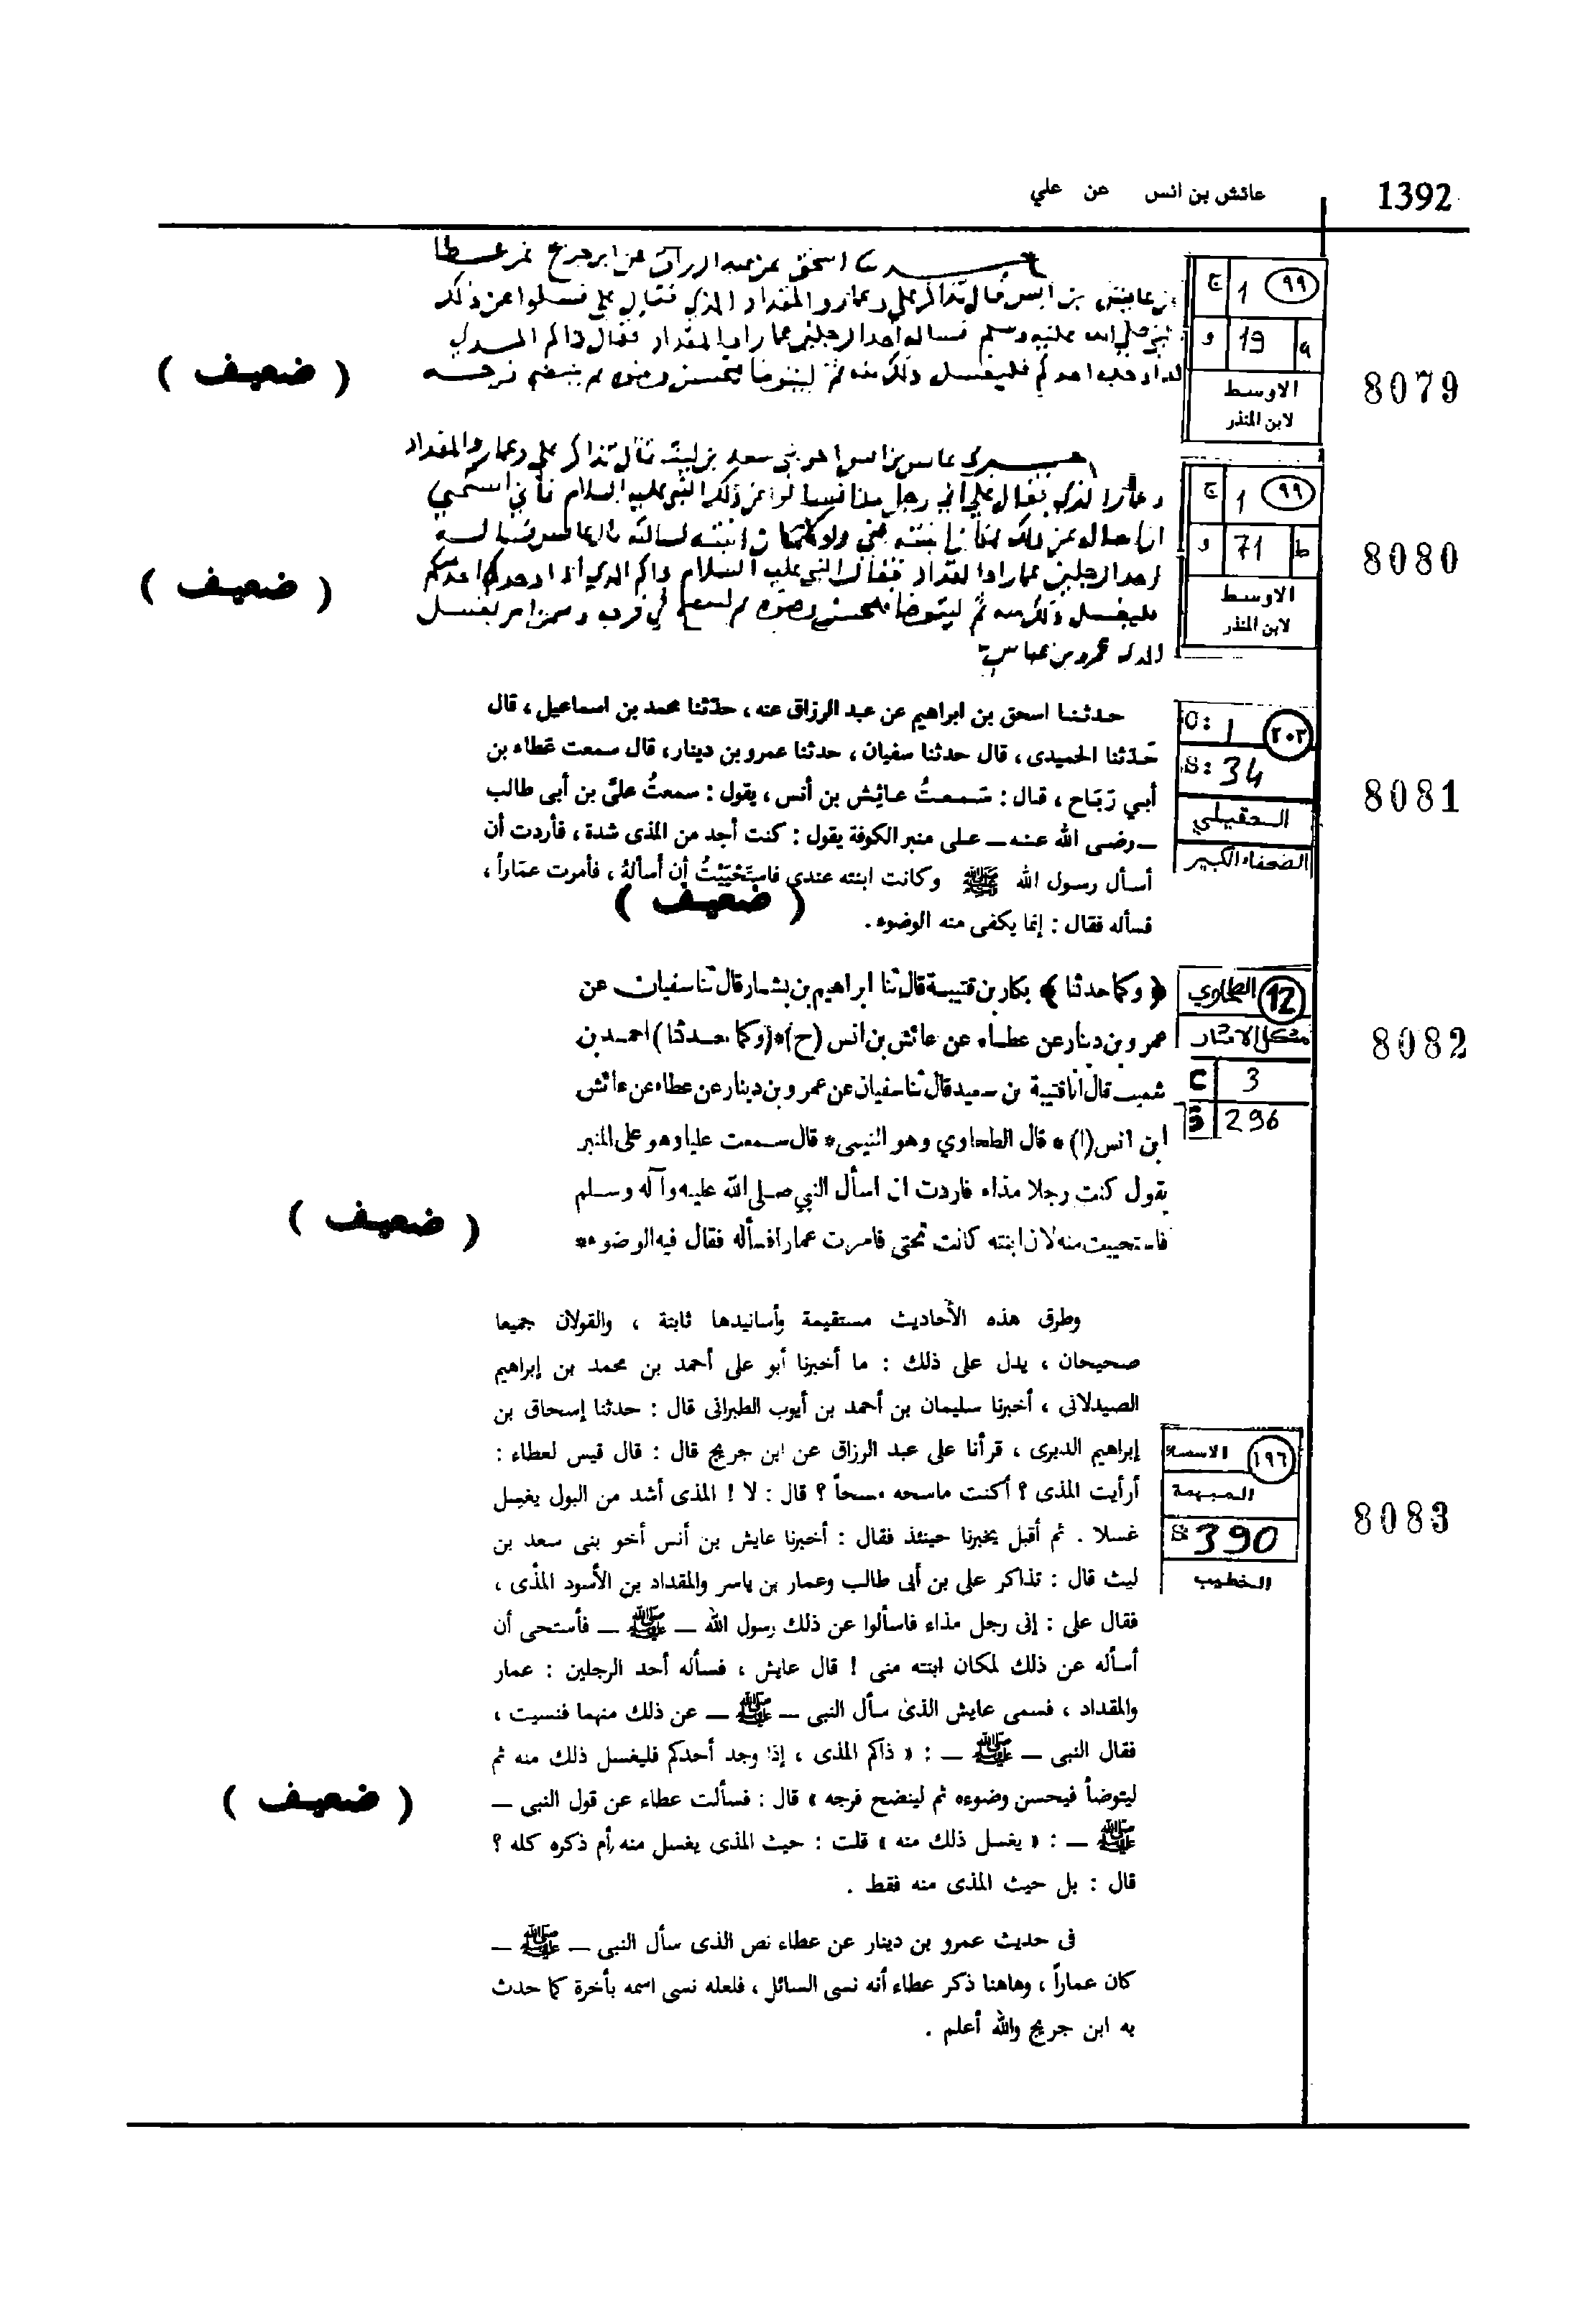 1392
عائش بن انس عن علي
حدثنا اسحق عن عبد الرزاق عن ابن جريج عن عطا
عن عايش بن انس قال تذاكر علي وعمار والمقداد المذي فقال علي فسلوا عن ذلك
النبي صلى الله عليه وسلم فساله احد الرجلين عمار او المقداد فقال ذاكم المذي
احدكم فليغسل ذلك منه ثم ليتوضا فيحسن وضوه ثم ينضح فرجه
( ضعيف )
٩٩ 1 ج
a 19 و
الاوسط
لابن المنذر
8079
عايس بن انس اخو بني سعد بن ليث قال تذاكر علي وعمار والمقداد
المذي فقال علي اني رجل مذا فسالوا عن ذلك النبي عليه السلام فاني استحيي
احد الرجلين عمار او المقداد فقال النبي عليه السلام ذاكم المذي اذا وجده احدكم
فليغسل ذلك منه ثم ليتوضا فيحسن وضوه
( ضعيف )
٩٩ 1 ج
b 71 و
الاوسط
لابن المنذر
8080
حدثنا اسحق بن ابراهيم عن عبد الرزاق عنه ، حدّثنا محمد بن اسماعيل ، قال
حَدّثنا الحميدى ، قال حدثنا سفيان ، حدثنا عمرو بن دينار ، قال سمعت عَطاء بن
أبي رَبَاح ، قال : سَمعتُ عائِش بن أنس ، يقول : سمعتُ علىَّ بن أبى طالب
ــ رضى الله عنه ــ على منبر الكوفة يقول : كنت أجد من المذى شدة ، فأردت أن
أسأل رسول الله ﷺ وكانت ابنته عندى فاستَحْيَيْتُ أن أسألهُ ، فأمرت عمّاراً ،
فسأله فقال : إنما يكفى منه الوضوء .
( ضعيف )
C: 1 ٢٠٢
S: 34
العقيلي
الضعفاء الكبير
8081
﴿ وكما حدثنا ﴾ بكار بن قتيبة قال ثنا ابراهيم بن بشار قال ثنا سفيان عن
عمرو بن دينار عن عطاء عن عائش بن انس (ح)*(وكما حدثنا) احمد بن
شعيب قال انا قتيبة بن سعيد قال ثنا سفيان عن عمرو بن دينار عن عطاء عن عائش
ابن انس (١) * قال الطحاوي وهو الليثى * قال سمعت عليا وهو على المنبر
يقول كنت رجلا مذاء فاردت ان اسأل النبي صلى الله عليه وآله وسلم
فاستحييت منه لان ابنته كانت تحتى فامرت عمارا فسأله فقال فيه الوضوء *
( ضعيف )
12 الطحاوي
مشكل الاثار
C 3
S 296
8082
وطرق هذه الأحاديث مستقيمة وأسانيدها ثابتة ، والقولان جميعا
صحيحان ، يدل على ذلك : ما أخبرنا أبو على أحمد بن محمد بن إبراهيم
الصيدلانى ، أخبرنا سليمان بن أحمد بن أيوب الطبرانى قال : حدثنا إسحاق بن
إبراهيم الدبرى ، قرأنا على عبد الرزاق عن ابن جريج قال : قال قيس لعطاء :
أرأيت المذى ؟ أكنت ماسحه مسحاً ؟ قال : لا ! المذى أشد من البول يغسل
غسلا . ثم أقبل يخبرنا حينئذ فقال : أخبرنا عايش بن أنس أخو بنى سعد بن
ليث قال : تذاكر على بن أبى طالب وعمار بن ياسر والمقداد بن الأسود المذى ،
فقال على : إنى رجل مذاء فاسألوا عن ذلك رسول الله ــ ﷺ ــ فأستحى أن
أسأله عن ذلك لمكان ابنته منى ! قال عايش ، فسأله أحد الرجلين : عمار
والمقداد ، فسمى عايش الذى سأل النبى ــ ﷺ ــ عن ذلك منهما فنسيت ،
فقال النبى ــ ﷺ ــ : « ذاكم المذى ، إذا وجد أحدكم فليغسل ذلك منه ثم
ليتوضأ فيحسن وضوءه ثم لينضح فرجه » قال : فسألت عطاء عن قول النبى ــ
ﷺ ــ : « يغسل ذلك منه » قلت : حيث المذى يغسل منه أم ذكره كله ؟
قال : بل حيث المذى منه فقط .
( ضعيف )
١٩٦ الاسماء
المبهمة
S: 390
الخطيب
8083
فى حديث عمرو بن دينار عن عطاء نص الذى سأل النبى ــ ﷺ ــ
كان عماراً ، وهاهنا ذكر عطاء أنه نسى السائل ، فلعله نسى اسمه بأخرة كما حدث
به ابن جريج والله أعلم .